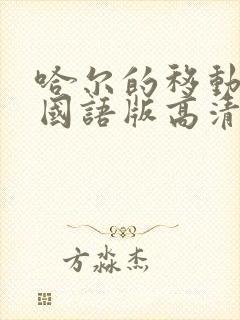 哈尔的移動
國語版高清
方淼杰